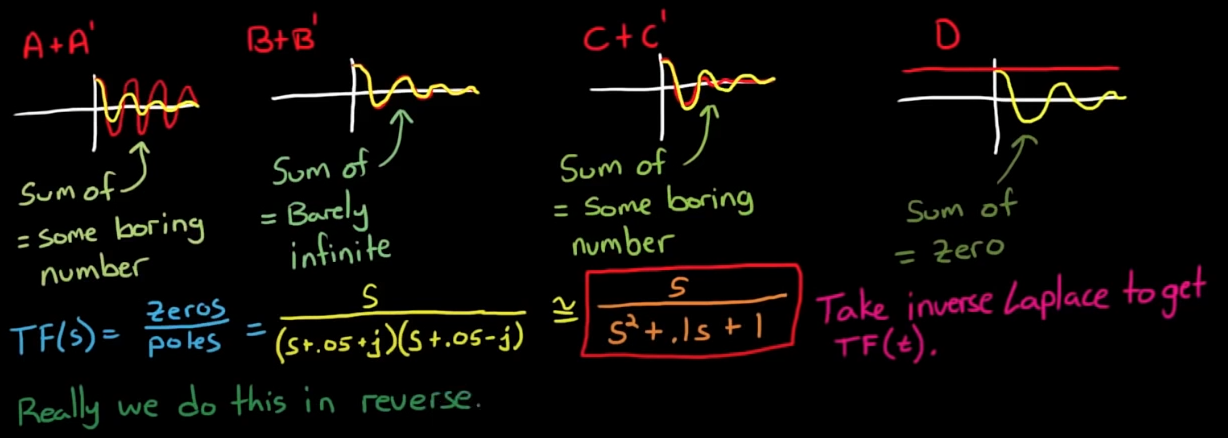 A+A'
B+B'
C+C'
D
Sum of
= some boring
number
Sum of
= Barely
infinite
Sum of
= some boring
number
Sum of
= zero
TF(s) = zeros/poles = s/((s+.05+j)(s+.05-j)) ≅ s/(s²+.1s+1)
Take inverse Laplace to get
TF(t).
Really we do this in reverse.